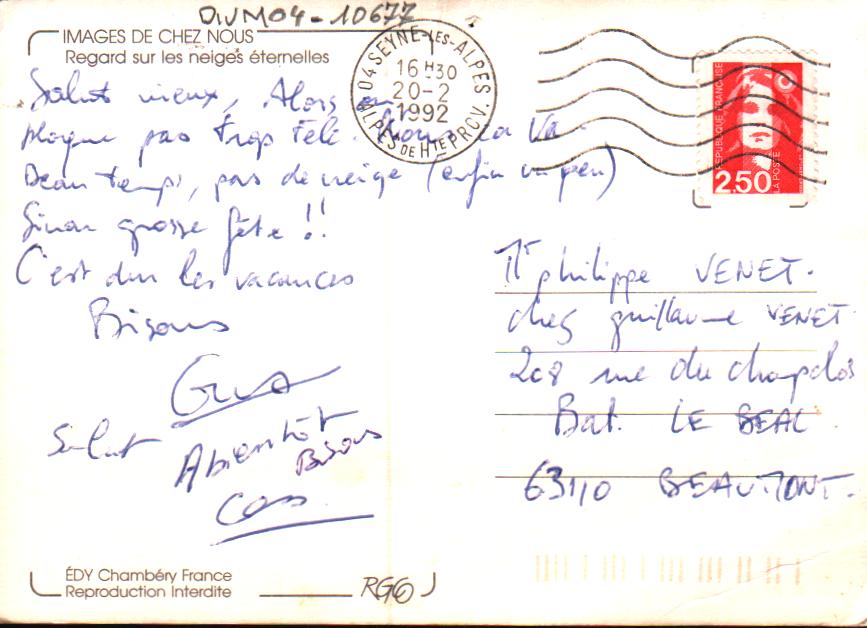 DIVM04-10677
IMAGES DE CHEZ NOUS
Regard sur les neiges éternelles
04 SEYNE-LES-ALPES
16 H 30
20-2
1992
ALPES DE HTE PROV.
REPUBLIQUE FRANÇAISE
LA POSTE
2,50
Salut vieux, Alors on
ploque pas trop télé. Nous ça va.
Beau temps, pas de neige (enfin un peu)
Sinon grosse fête !!
C'est dur les vacances
Bisous
Salut
Abientôt
Bisous
Mr philippe VENET.
chez guillaume VENET
208 rue du chapelos
Bat. LE BEAL
63110 BEAUMONT.
ÉDY Chambéry France
Reproduction Interdite
RGG